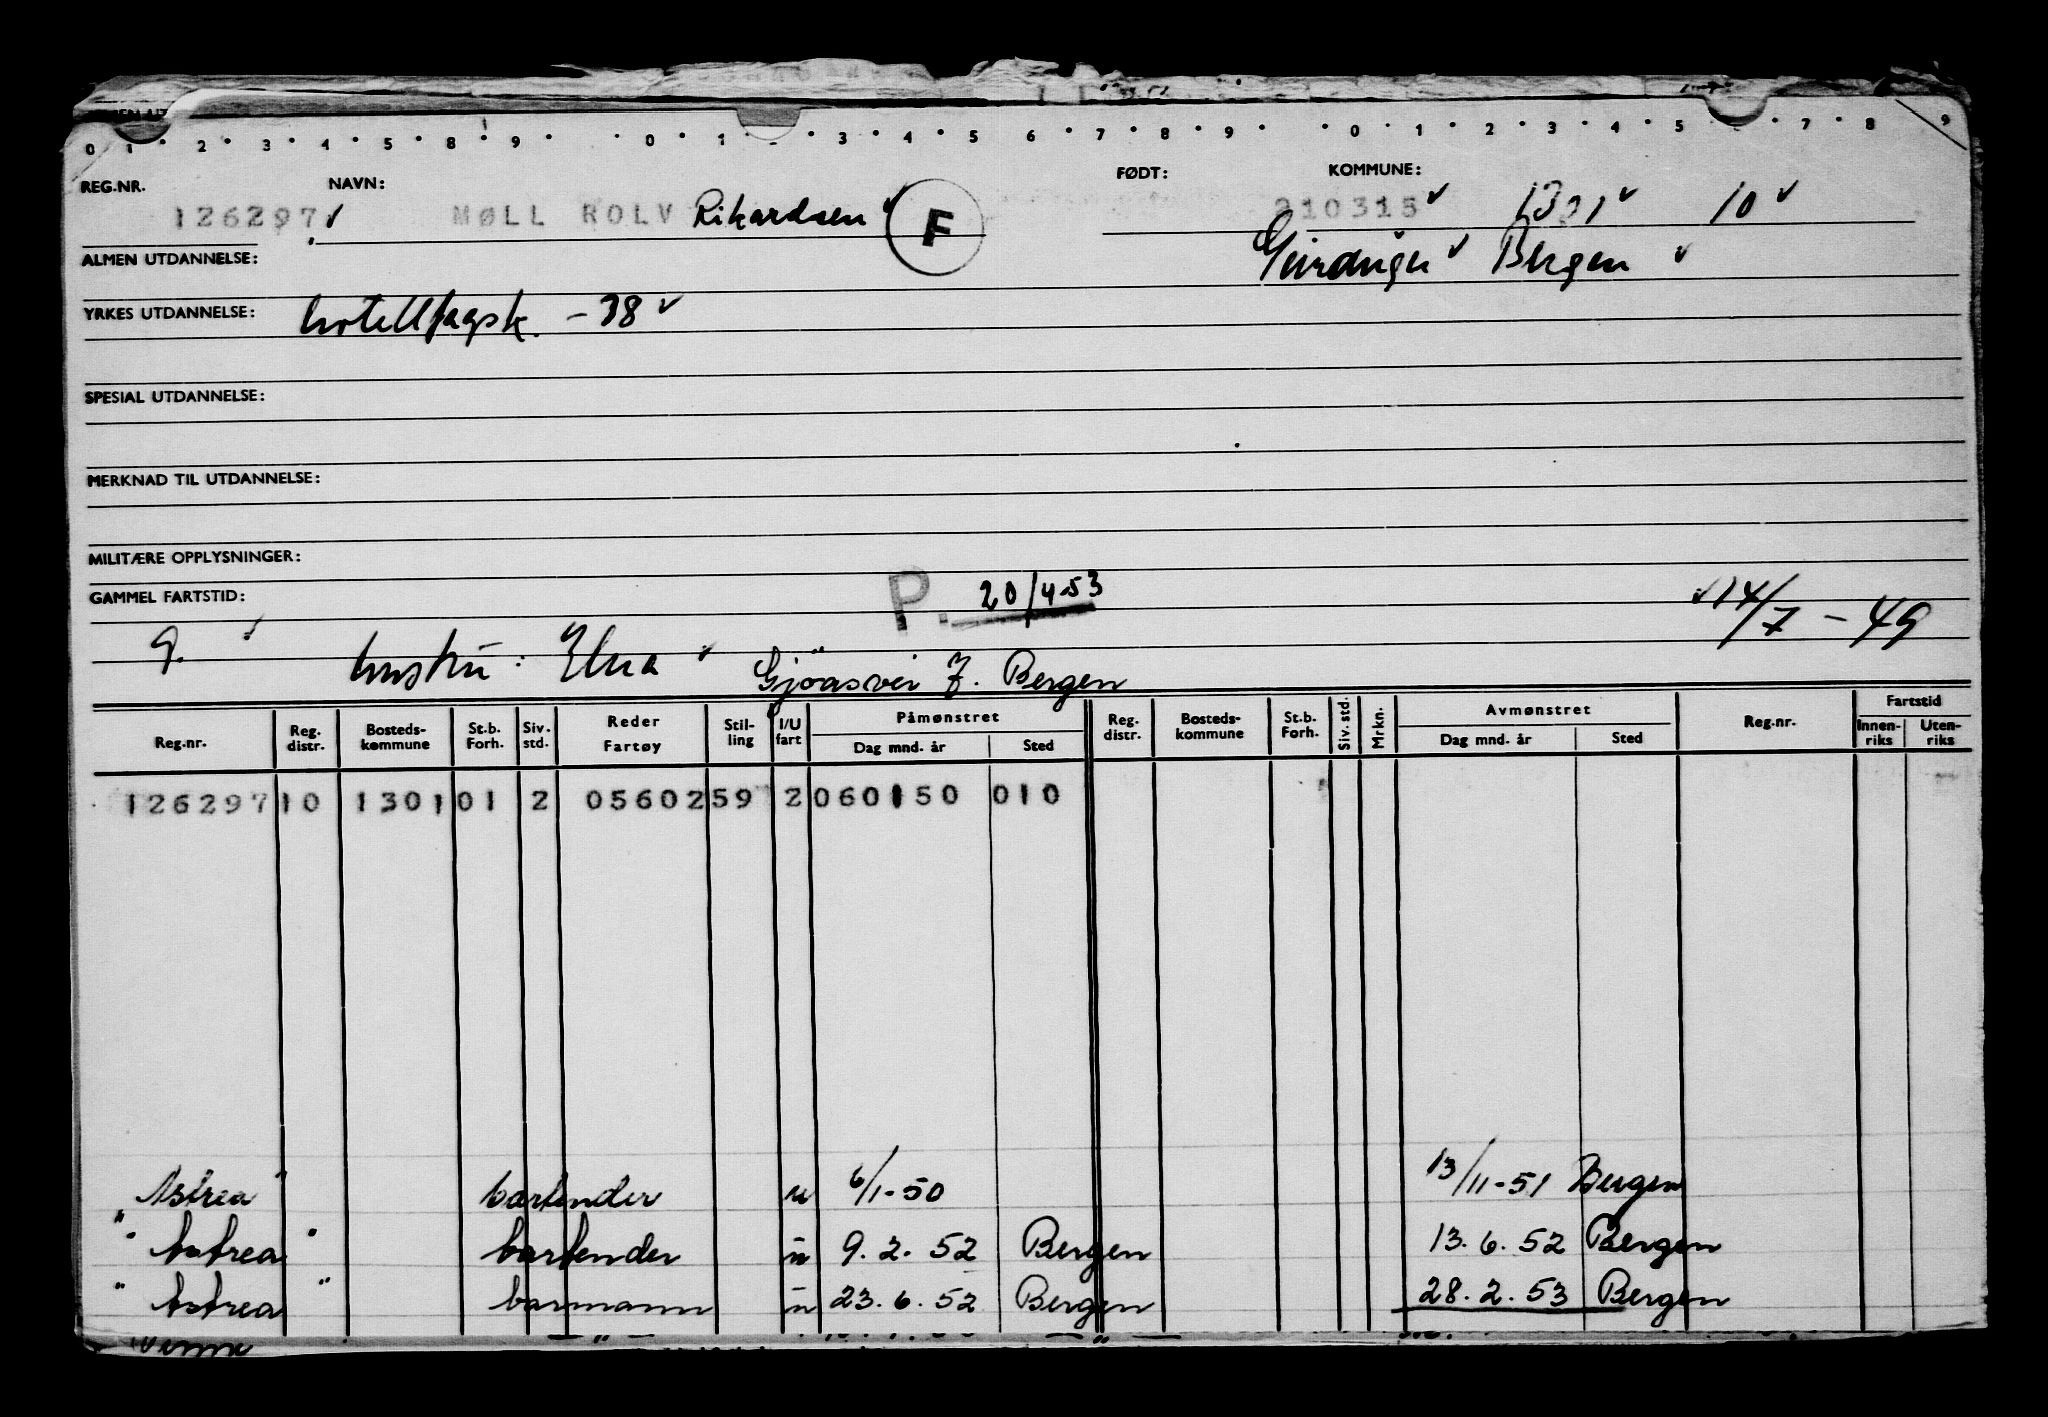 0 1 2 3 4 5 8 9 0 1 3 4 5 6 7 8 9 0 1 2 3 4 5 7 8 9
REG.NR. NAVN: FØDT: KOMMUNE:
126297 MØLL ROLV Rikardsen F 210315 1301 10
ALMEN UTDANNELSE: Bergen
YRKES UTDANNELSE: hotellfagsk. - 38
SPESIAL UTDANNELSE:
MERKNAD TIL UTDANNELSE:
MILITÆRE OPPLYSNINGER:
GAMMEL FARTSTID: P. 20/4-53 14/7 - 49
g. hustru: Elna Bergen
Reg.nr. Reg. distr. Bosteds- kommune St.b. Forh. Siv. std. Reder Fartøy Stil- ling I/U fart Påmønstret Dag mnd. år Sted Reg. distr. Bosteds- kommune St.b. Forh. Siv. std. Mrkn. Avmønstret Dag mnd. år Sted Reg.nr. Fartstid Innen- riks Uten- riks
126297 10 1301 01 2 05602 59 2 060150 010
"Astrea" bartender u 6/1-50 13/11-51 Bergen
"Astrea" bartender u 9.2.52 Bergen 13.6.52 Bergen
"Astrea" barmann u 23.6.52 Bergen 28.2.53 Bergen